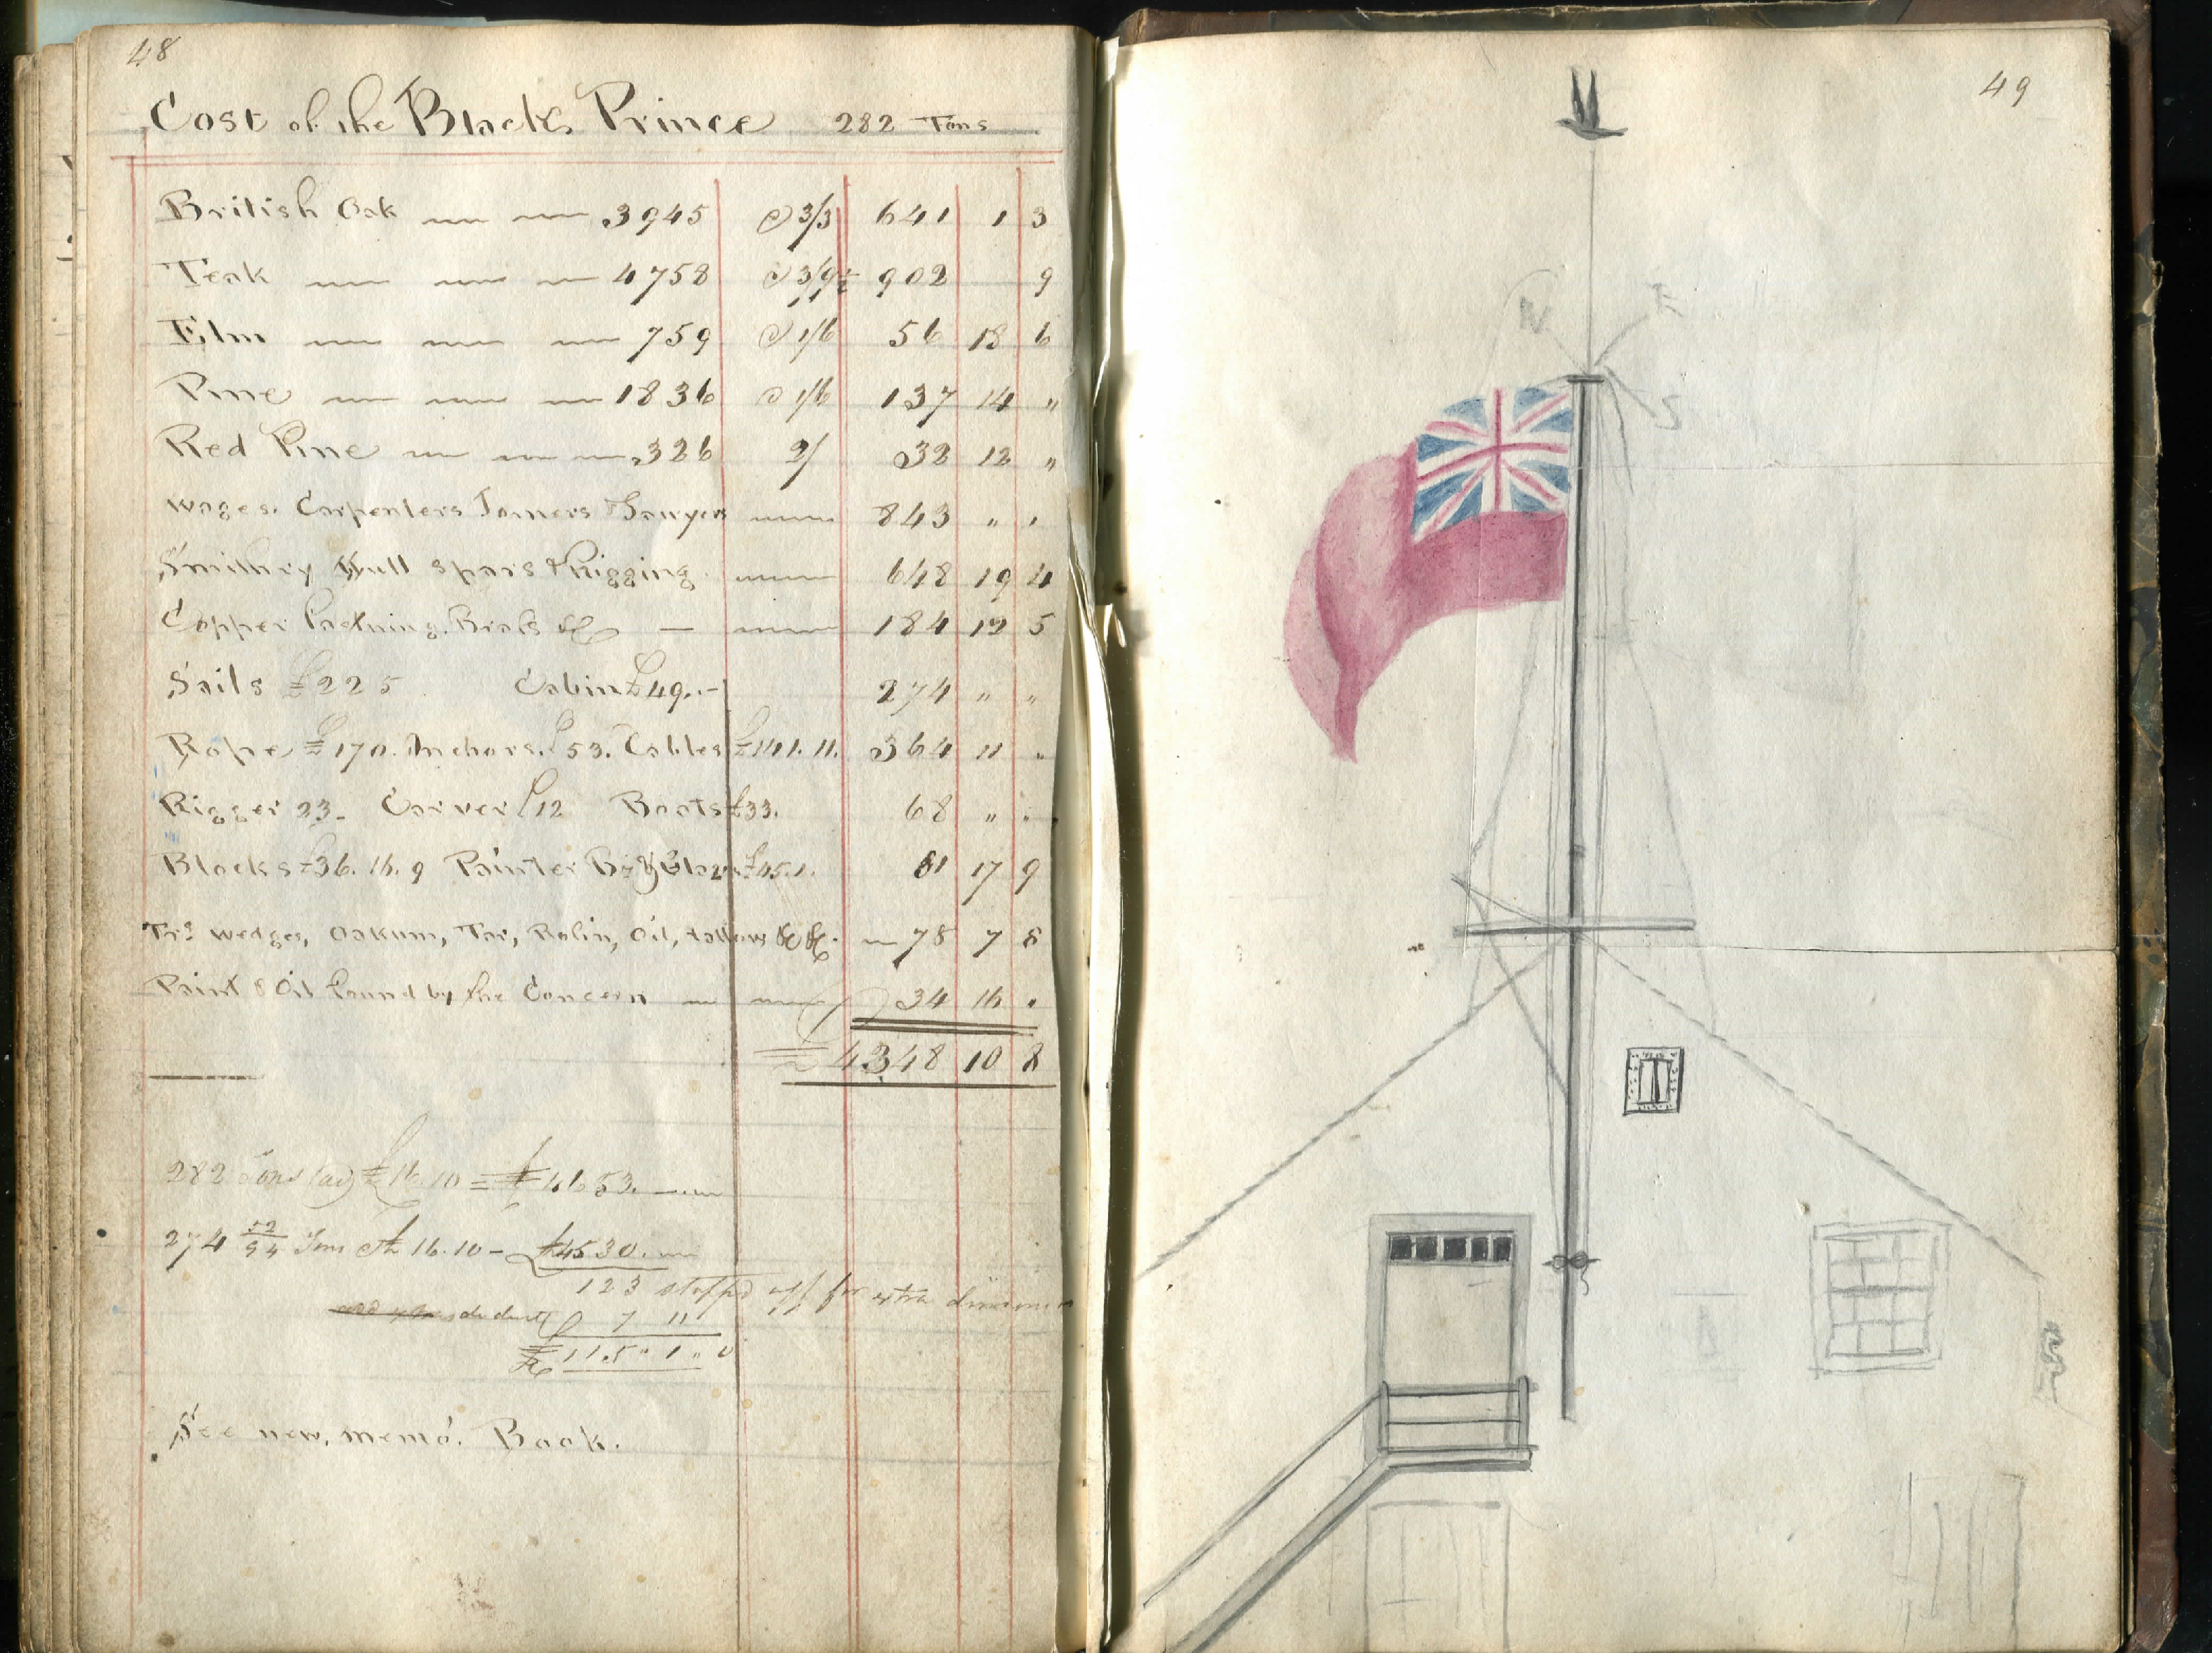 48
Cost of the Black Prince 282 Tons
British Oak 3945 @ 3/3 641 1 3
Teak 4758 @ 3/9½ 902 9
Elm 759 @ 1/6 56 18 6
Pine 1836 @ 1/6 137 14 "
Red Pine 326 2/ 32 12 "
Wages. Carpenters Joiners & Sawyers 843 " "
Smithery Hull Spars & Rigging 648 19 4
Copper Fastning. &c 184 12 5
Sails £225 Cabin £49.. - 274 " "
Rope £170. Anchors. £53. Cables £141. 11. 364 11 "
Rigger 23 - Carver £12 Boats £33. 68 " "
Blocks £36. 16. 9 Painter £45. 1. 81 17 9
Trs wedges, Oakum, Tar, Rosin, Oil, tallow &c &c. 78 7 8
Paint & Oil found by the Concern 34 16 "
£4348 10 8
282 Tons (a) £16.10 = £4653.
274 52/94 Tons at 16.10 - £4530.
123 stopp'd off for extra dimensions
deduct 7 11
£115 " 1 " 0
See new, memo. Book.
49
N
E
S